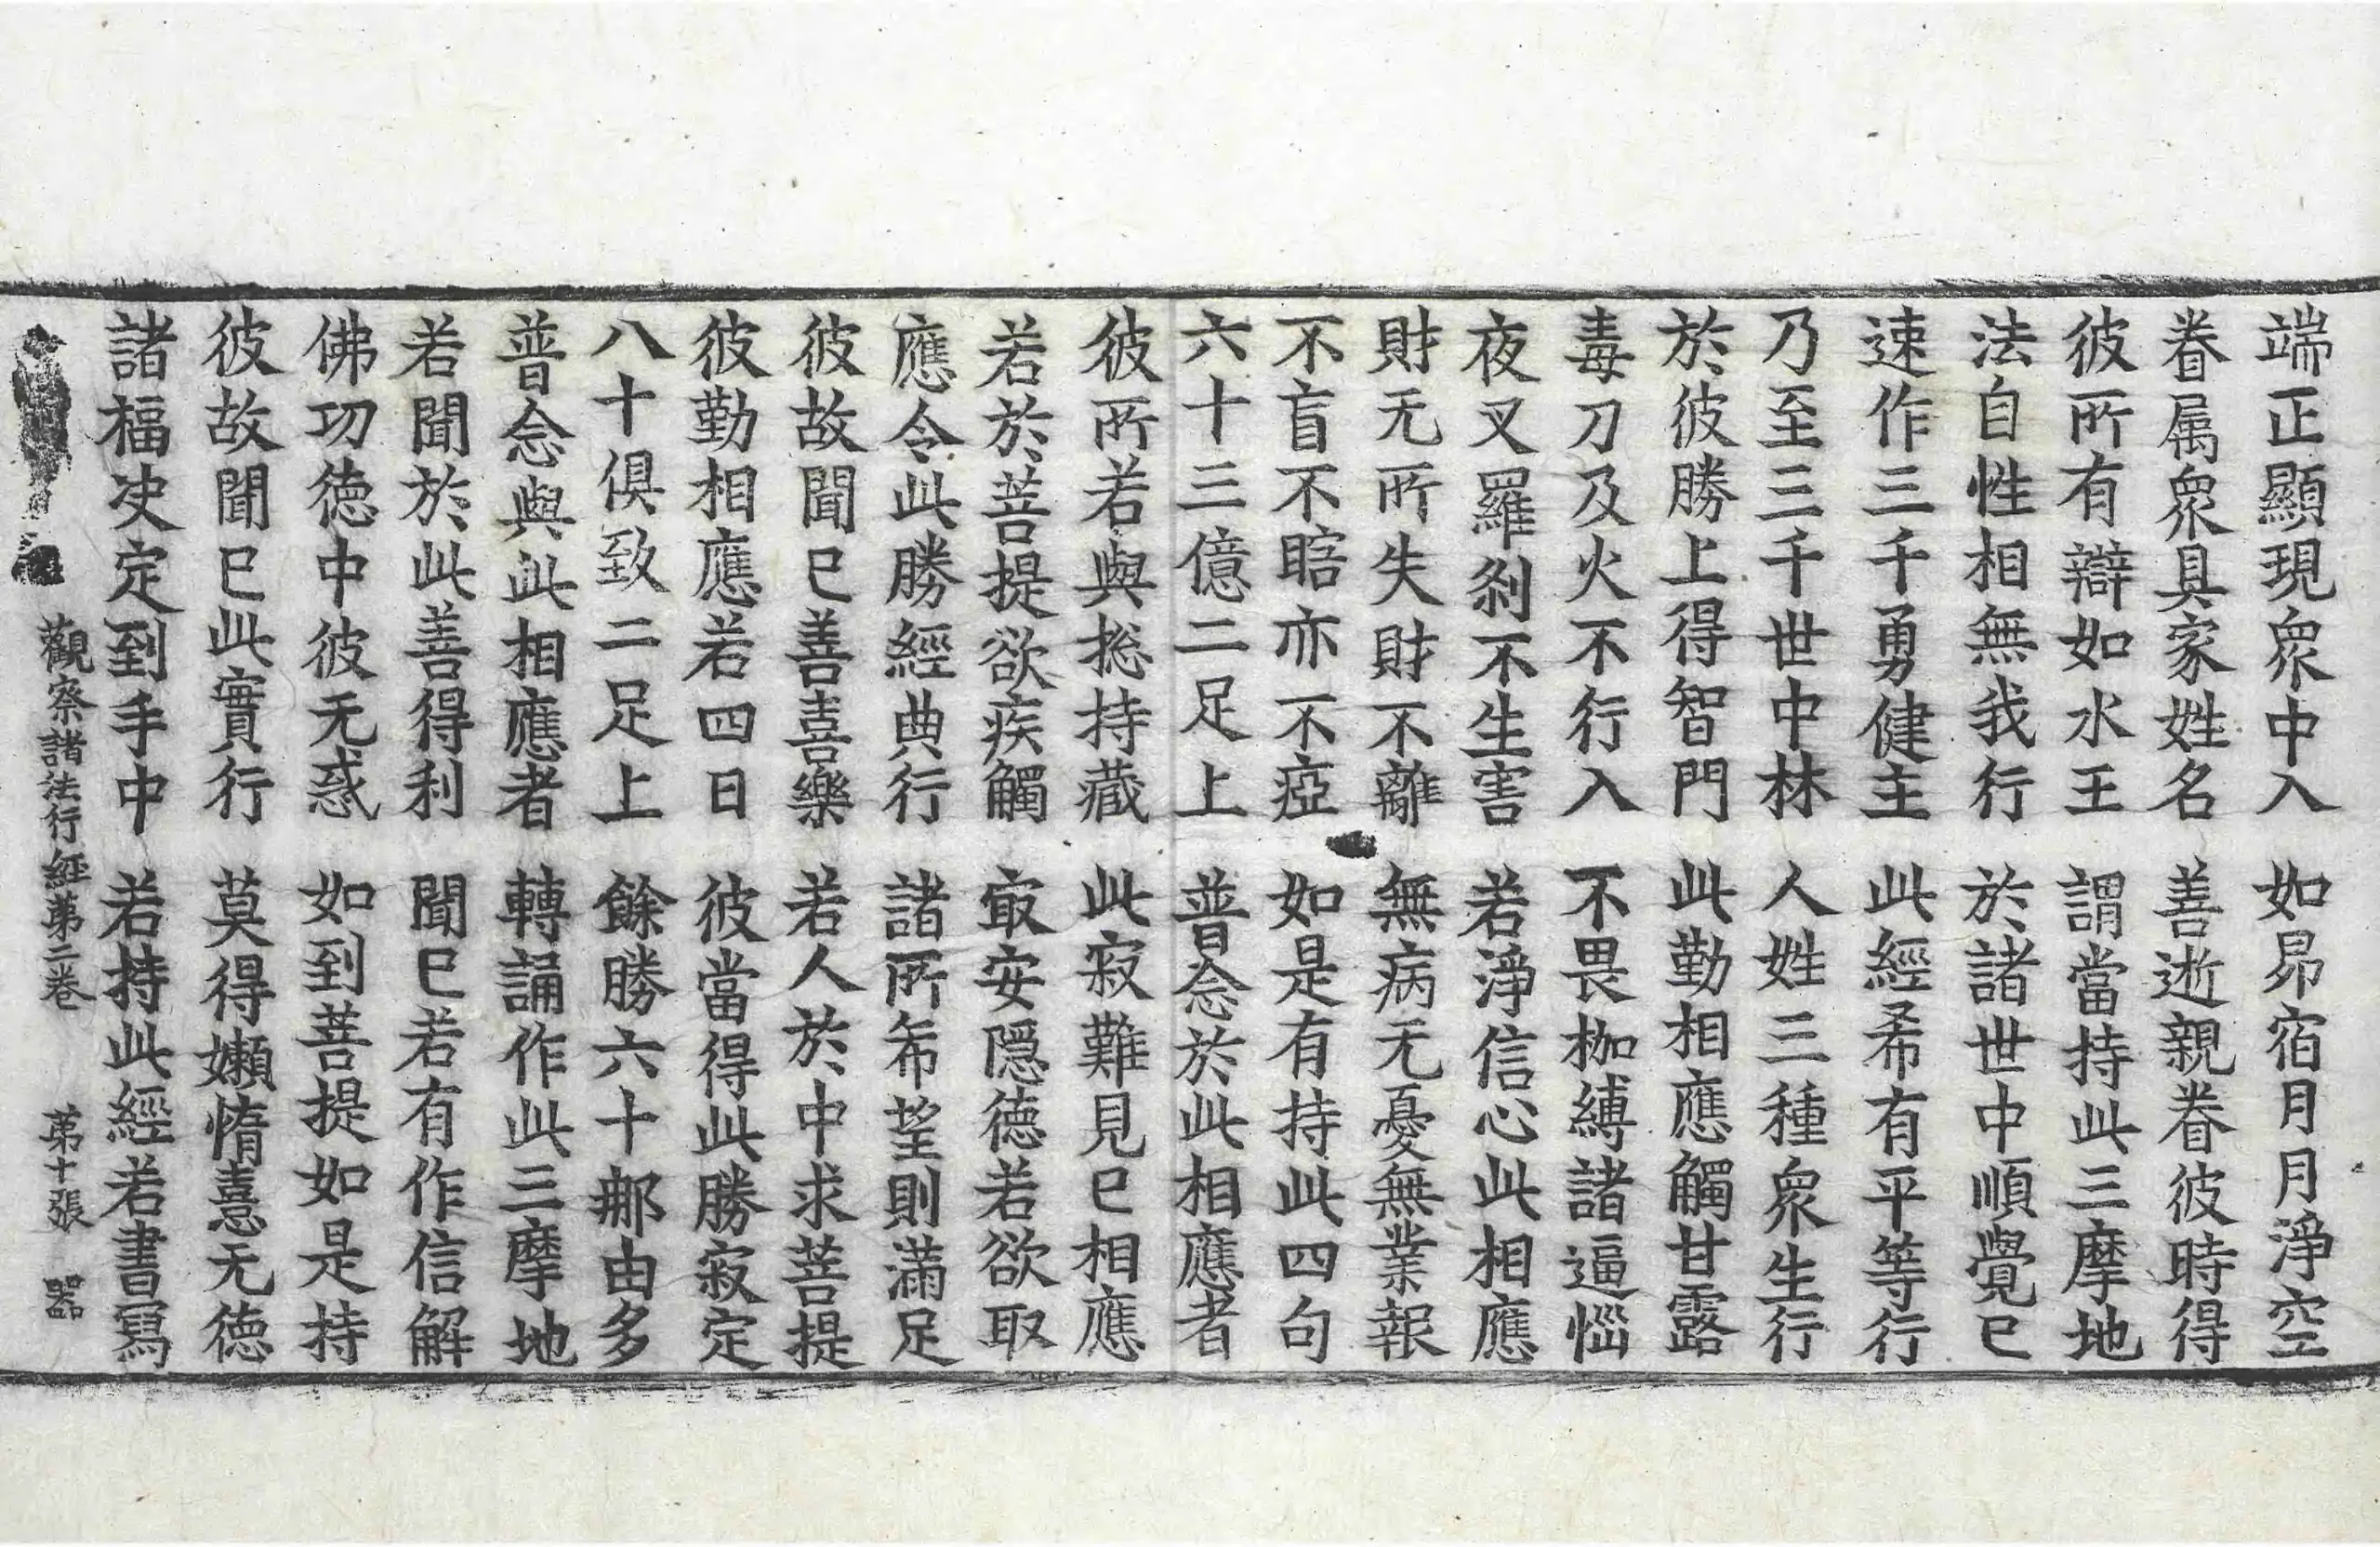 端正顯現衆中入　如昴宿月月淨空
眷属衆具家姓名　善逝親眷彼時得
彼所有辯如水王　謂當持此三摩地
法自性相無我行　於諸世中順覺已
速作三千勇健主　此經希有平等行
乃至三千世中林　人姓三種衆生行
於彼勝上得智門　此勤相應觸甘露
毒刀及火不行入　不畏枷縛諸逼惱
夜叉羅刹不生害　若淨信心此相應
財无所失財不離　無病无憂無業報
不盲不瞎亦不瘂　如是有持此四句
六十三億二足上　普念於此相應者
彼所若與揔持藏　此寂難見已相應
若於菩提欲疾觸　㝡安隱德若欲取
應令此勝經典行　諸所希望則滿足
彼故聞已善喜樂　若人於中求菩提
彼勤相應若四日　彼當得此勝寂定
八十俱致二足上　餘勝六十那由多
普念與此相應者　轉誦作此三摩地
若聞於此善得利　聞已若有作信解
佛功德中彼无惑　如到菩提如是持
彼故聞已此實行　莫得嬾惰憙无德
諸福决定到手中　若持此經若書寫
觀察諸法行經第二卷　第十張　器